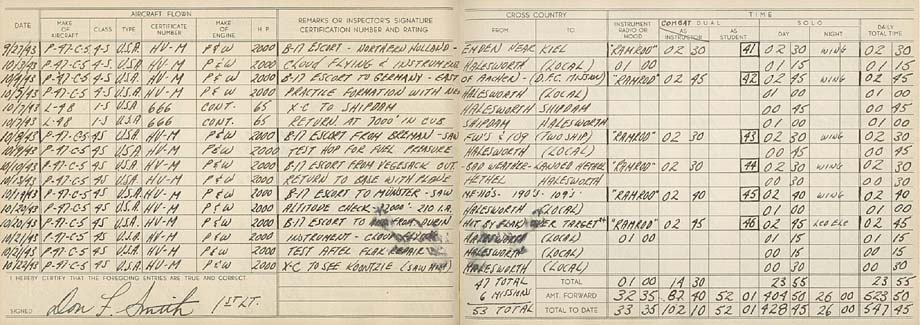 AIRCRAFT FLOWN CROSS COUNTRY TIME
DATE MAKE OF AIRCRAFT CLASS TYPE CERTIFICATE NUMBER MAKE OF ENGINE H.P. REMARKS OR INSPECTOR'S SIGNATURE CERTIFICATION NUMBER AND RATING FROM TO INSTRUMENT RADIO OR HOOD COMBAT DUAL AS INSTRUCTOR AS STUDENT SOLO DAY NIGHT DAILY TOTAL TIME
9/27/43 P-47-C-5 4-S U.S.A. HV-M P&W 2000 B-17 ESCORT - NORTHERN HOLLAND - EMDEN NEAR KIEL "RAMROD" 02 30 41 02 30 WING 02 30
P-47-C-5 4-S U.S.A. HV-M P&W 2000 CLOUD FLYING & INSTRUMENT HALESWORTH (LOCAL) 01 00 01 15 01 15
10/4/43 P-47-C-5 4-S U.S.A. HV-M P&W 2000 B-17 ESCORT TO GERMANY - EAST OF AACHEN - (D.F.C. MISSION) "RAMROD" 02 45 42 02 45 WING 02 45
10/5/43 P-47-C-5 4-S U.S.A. HV-M P&W 2000 PRACTICE FORMATION WITH NEW HALESWORTH (LOCAL) 01 00 01 00
10/7/43 L-4B 1-S U.S.A. 666 CONT. 65 X-C TO SHIPDAM HALESWORTH SHIPDAM 00 45 00 45
10/7/43 L-4B 1-S U.S.A. 666 CONT. 65 RETURN AT 7000' IN CUB SHIPDAM HALESWORTH 01 00 01 00
10/8/43 P-47-C-5 4S U.S.A. HV-M P&W 2000 B-17 ESCORT FROM BREMAN - SAW FW'S & 109 (TWO SHIP) "RAMROD" 02 30 43 02 30 WING 02 30
10/9/43 P-47-C-5 4S U.S.A. HV-M P&W 2000 TEST HOP FOR FUEL PRESSURE HALESWORTH (LOCAL) 00 45 00 45
10/10/43 P-47-C-5 4S U.S.A. HV-M P&W 2000 B-17 ESCORT FROM VEGESACK OUT. BAD WEATHER - LANDED HETHEL "RAMROD" 02 30 44 02 30 WING 02 30
P-47-C-5 4S U.S.A. HV-M P&W 2000 RETURN TO BASE WITH PLANE HETHEL HALESWORTH 00 30 00 30
P-47-C-5 4S U.S.A. HV-M P&W 2000 B-17 ESCORT TO MUNSTER - SAW 190'S - 109'S "RAMROD" 02 40 45 02 40 WING 02 40
10/20/43 P-47-C-5 4S U.S.A. HV-M P&W 2000 ALTITUDE CHECK 210 I.A. HALESWORTH (LOCAL) 01 00 01 00
10/20/43 P-47-C-5 4S U.S.A. HV-M P&W 2000 B-17 ESCORT TO FROM DUREN HIT BY FLAK OVER TARGET "RAMROD" 02 45 46 02 45 02 45
10/21/43 P-47-C-5 4S U.S.A. HV-M P&W 2000 INSTRUMENT - CLOUD HALESWORTH (LOCAL) 01 00 01 15 01 15
10/21/43 P-47-C-5 4S U.S.A. HV-M P&W 2000 TEST AFTER FLAK REPAIR HALESWORTH (LOCAL) 00 15 00 15
10/22/43 P-47-C-5 4S U.S.A. HV-M P&W 2000 X-C TO SEE KOONTZIE (SAW HIM) HALESWORTH (LOCAL) 00 30 00 30
I HEREBY CERTIFY THAT THE FOREGOING ENTRIES ARE TRUE AND CORRECT. 47 TOTAL TOTAL 01 00 14 30 23 55 23 55
6 MISSIONS AMT. FORWARD 32 35 87 40 52 01 404 50 26 00 523 50
SIGNED Don L. Smith 1ST LT. 53 TOTAL TOTAL TO DATE 33 35 102 10 52 01 428 45 26 00 547 45